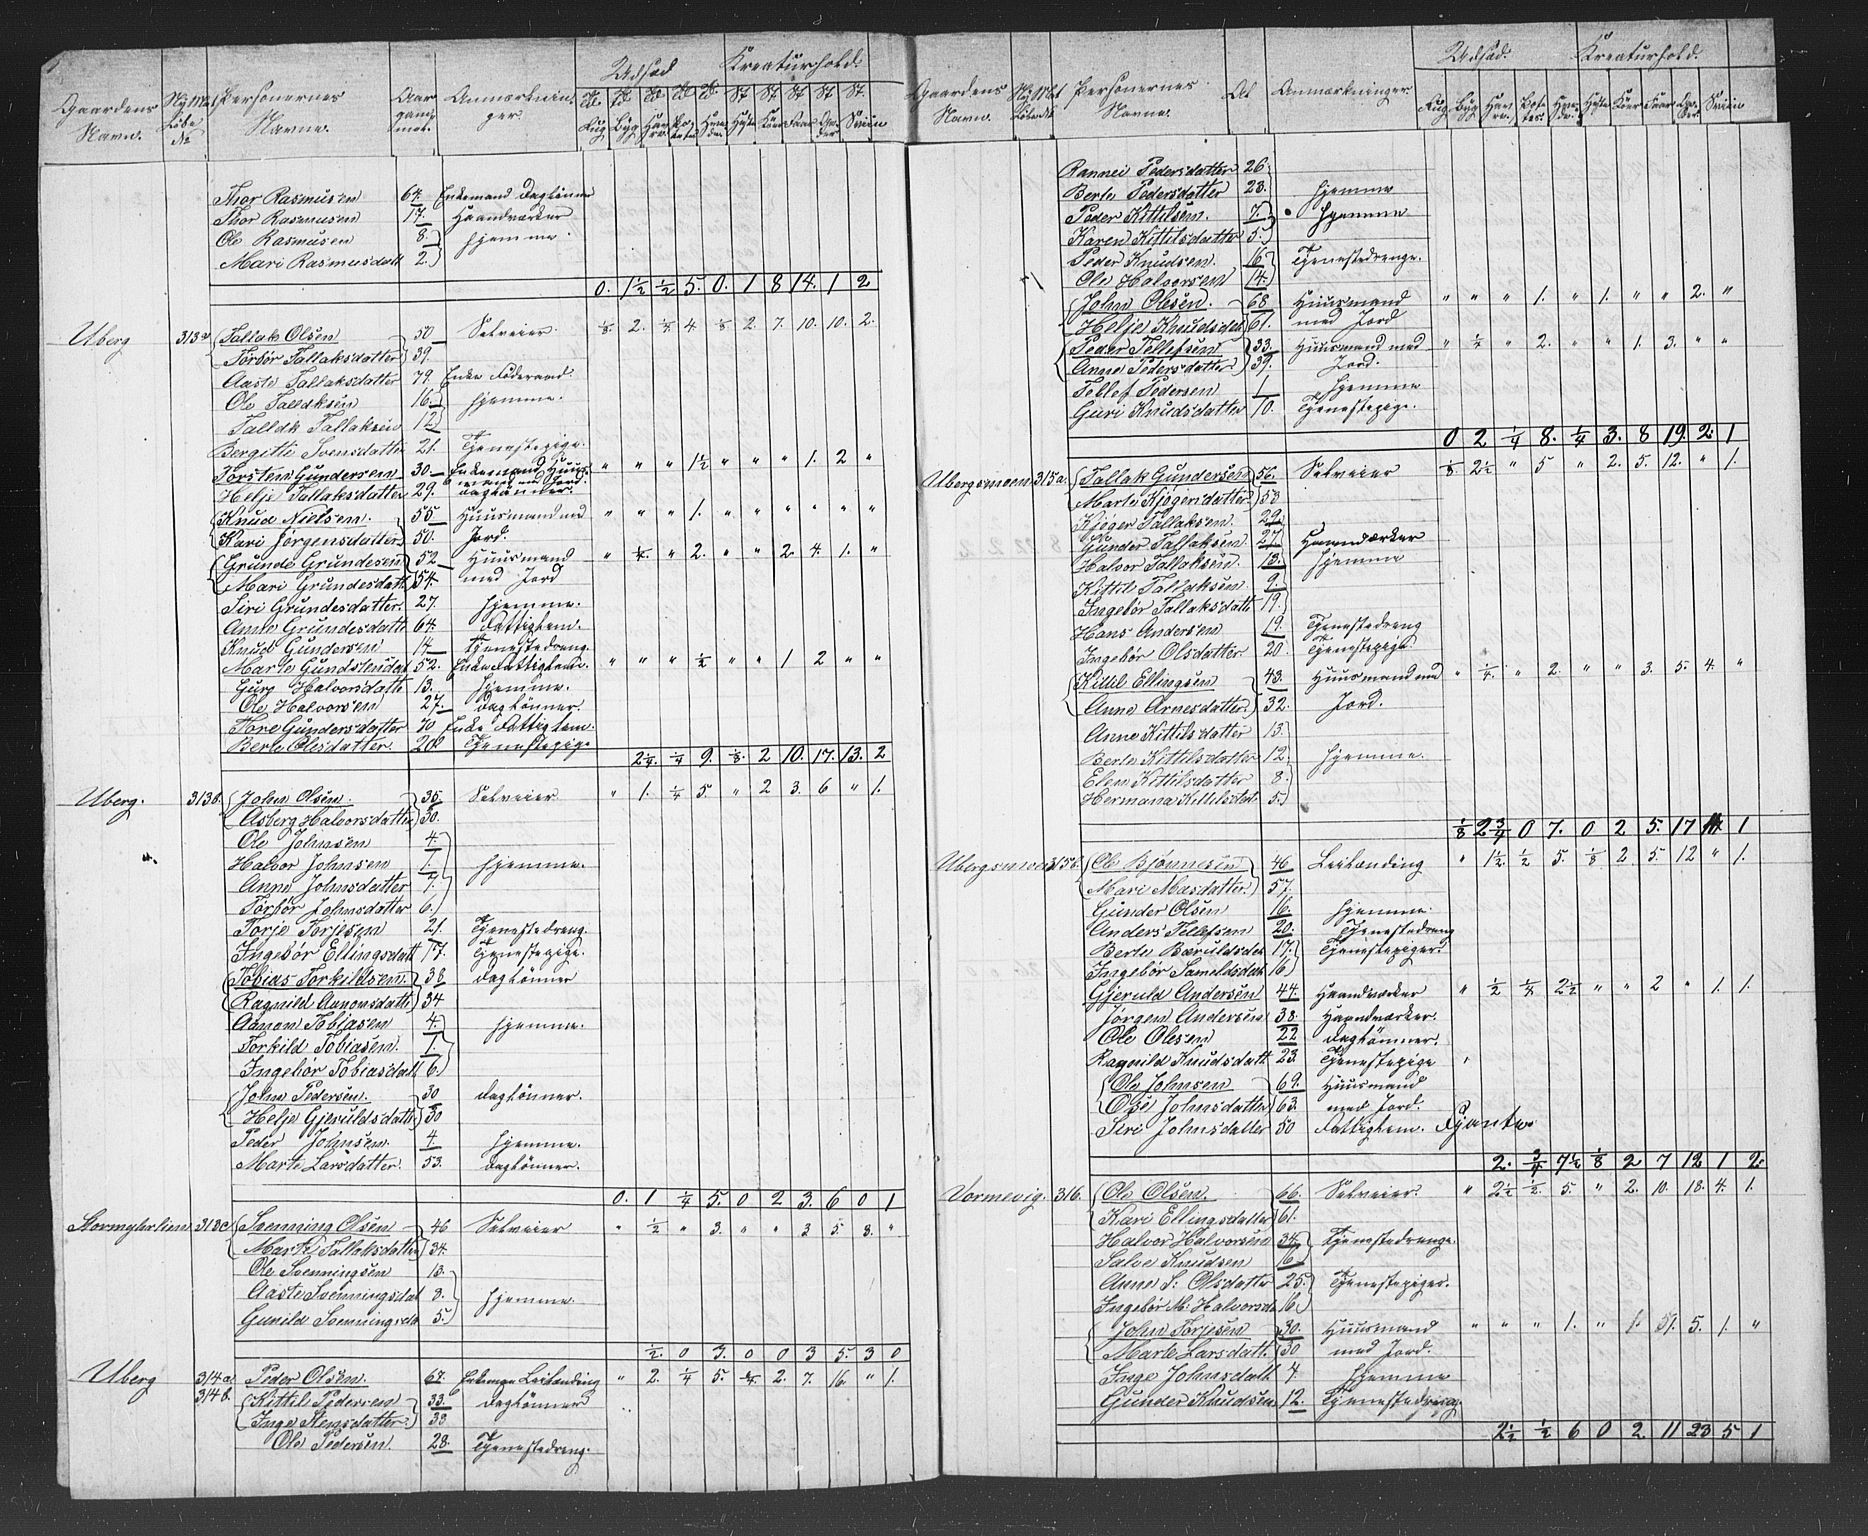 Gaardens Navn. | Ny Mat Løbe No | Personernes Navne. | Aargangmet. | Anmærkninger. | Udsæd | Kreaturhold.
Rug | Byg | Havre | Potetes | Heste | Køer | Faar | Sviin
Thor Rasmusen 67. Enkemand Dagtønner
Thor Rasmusen 17. Haandværker
Ole Rasmusen 8. hjemme.
Mari Rasmusdatt 2.
0. 1 1/2 1/2 5. 0. 1 8 14. 1 2
Uberg 313a Tallak Olsen 50 Selveier 1/8 2. 1/4 4 1/8 2. 7. 10. 10. 2.
Torbør Tallaksdatter 39.
Aaste Tallaksdatter 79. Enke Føderaad.
Ole Tallaksen 16. hjemme.
Tallak Tallaksen 12
Bergitte Svensdatter 21. Tjenestepige.
Torsten Gundersen 30. Enkemand Huusmand med Jord. dagtønner. " " " 1 1/2 " " " 1. 2 "
Helje Tallaksdatter 29.
Knud Nielsen. 55 Huusmand med " " " 1. " " " " " "
Kari Jørgensdatter 50. Jord.
Grunde Grundesen 52 Huusmand " 1/4. " 2. " " 2 4. 1. "
Mari Grundesdatt 54. med Jord
Siri Grundesdatter. 27. hjemme.
Anne Grundesdatt 64. Fattiglem.
Knud Gundersen 14 Tjenestedreng.
Marte 52. Enke Fattiglem. " " " 1/2 " " 1 2 " "
Guro Halvorsdatte 13. hjemme.
Ole Halvorsen 27. dagtønner.
Tore Gundersdatter 70 Enke Fattiglem.
Berte Olesdatter. 20 Tjenestepige
2 1/4. 1/4 9. 1/8. 2 10. 17. 13. 2
Uberg. 313b. John Olsen. 35. Selveier. " 1. 1/4 5 " 2 3. 6 " 1.
Asberg Halvorsdatter 30.
Ole Johnsen 4.
Halvor Johnsen 1. hjemme.
Anne Johnsdatter 7.
Torbør Johnsdatter 6.
Torje Torjesen 21. Tjenestedreng.
Ingebør Ellingsdatt 17. Tjenestepige.
Tobias Torkildsen. 38 dagtønner
Ragnild Aanonsdatt. 34
Aanon Tobiasen 4. hjemme.
Torkild Tobiasen. 1.
Ingebør Tobiasdatt 6.
John Pedersen. 30 dagtønner.
Helje Gjeruldsdatt. 30
Peder Johnsen. 4 hjemme.
Marte Larsdatter. 53. dagtønner.
0. 1 1/4 5. 0 2 3. 6 0 1
313c Svenning Olsen 46 Selveier " 1/2 " 3. " " 3 5. 3. "
Marte Tallaksdatter 34.
Ole Svenningsen 13.
Aaste Svenningsdat 8. hjemme.
Gunild Svenningsda 5.
1/2. 0 3. 0 0 3 5. 3 0
Uberg 314a. Peder Olsen. 67. Leilænding " 2. 1/4 5. 1/4. 2. 7. 16. " 1.
314b. Kittil Pedersen 33. dagtønner
Inge Stensdatter. 33
Ole Pedersen 28. Tjenestedreng.
Gaardens Navn. | Ny Mat Løbe No | Personernes Navne. | Al | Anmærkninger. | Udsæd. | Kreaturhold.
Rug | Byg | Havre. | Potetes. | Heste | Køer | Faar | Sviin
Rannei Pedersdatter 26.
Berte Pedersdatter 23. hjemme
Peder Kittilsen. 7. hjemme
Karen Kittilsdatter 5.
Peder Knudsen. 16 Tjenestedrenge.
Ole Halvorsen 14.
John Olsen. 68 Huusmand " " " 1. " 1. " " 2. "
Helje Knudsdat 61. med Jord
Peder Tellefsen 33. Huusmand med " 1/4 " 2. " " 1. 3. " "
Anne Pedersdatter. 39. Jord.
Tellef Pedersen 1 hjemme
Guri Knudsdatter 10. Tjenestepige.
0 2 1/4 8. 1/4 3. 8 19. 2. 1
Ubergsmoen 315a. Tallak Gundersen 56. Selveier 1/8. 2 1/2 " 5 " 2. 5. 12. " 1.
Marte Kjøgersdatter 53
Kjøger Tallaksen. 29.
Gunder Tallaksen. 27 Haandværker
Halvor Tallaksen. 13. hjemme
Kittil Tallaksen 9.
Ingebør Tallaksdatt 19.
Hans Andersen 19. Tjenestedreng
Ingebør Olsdatter. 20. Tjenestepige
Kittil Ellingsen 43. Huusmand med " 1/4. " 2. " " 3. 5. 4. "
Anne Arnesdatter. 32. Jord.
Anne Kittilsdatter 13.
Berte Kittilsdatter 12 hjemme.
Elen Kittilsdatter 8.
Hermana Kittilsdat. 5.
1/8 2 3/4 0 7. 0 2 5. 17 4. 1
Ubergsmoe 315b. Ole Bjønnesen 46 Leilænding " 1 1/2. 1/2 5. 1/8 2 5. 12 " 1.
Mari Masdatter. 57.
Gunder Olsen 16. hjemme.
Anders Tellefsen 20. Tjenestedreng
Berte 17. Tjenestepiger.
Ingebør 16
Gjeruld Andersen 44. Haandværker " 1/2 1/4 2 1/2 " " 2 " 1. 1.
Jørgen Andersen 38. Haandværker.
Ole Olesen 22 dagtønner.
Ragnild Knudsdatt. 23. Tjenestepige
Ole Johnsen 69. Huusmand
Ose Johnsdatter 63. med Jord.
Siri Johnsdatter 50 Fattiglem.
2. 3/4 7 1/2 1/8 2 7 12 1 2.
Vormevig. 316. Ole Olsen. 66. Selveier. " 2 1/2 1/2. 5. " 2. 10. 18. 4. 1.
Kari Ellingsdatter 61.
Halvor Halvorsen 34. Tjenestedrenge.
Salve Knudsen 16
Anne S. Olsdatter 25. Tjenestepiger.
Ingebør M. Halvorsda 16.
John Torjesen 30. Huusmand " " " 1. " 1. 5. 1. "
Marte Larsdatt. 30 med Jord.
Inge Johnsdatt. 4. hjemme
Gunder Knudsen. 12. Tjenestedreng.
2 1/2 1/2 6 0 2. 11 23 5 1